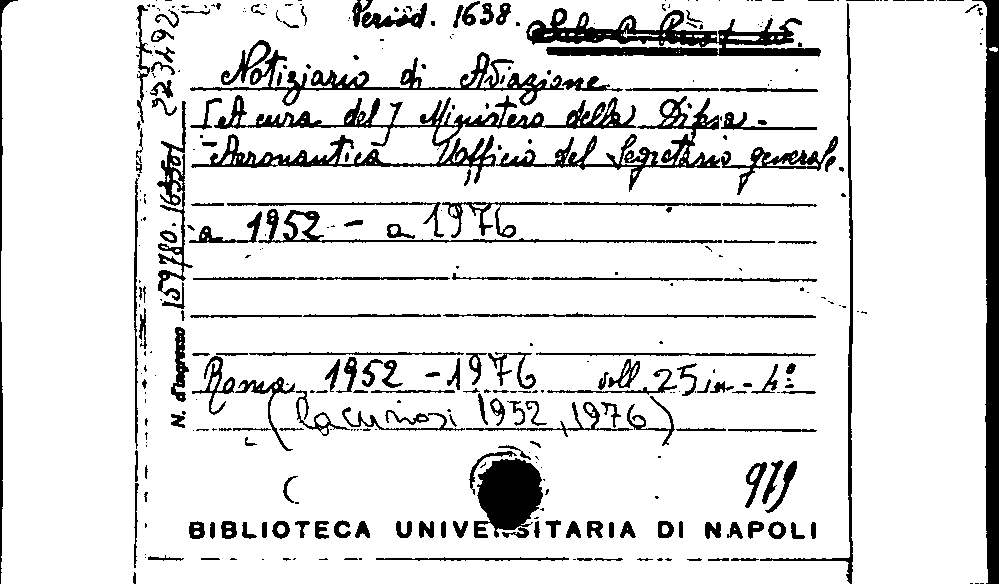 Period. 1638.
Notiziario di Aviazione
[A cura del] Ministero della Difesa-
-Aeronautica Ufficio del Segretario generale.
a 1952 - a 1976
Roma, 1952 - 1976 voll. 25 in - 4º
(lacunosi 1952, 1976)
C
979
BIBLIOTECA UNIVERSITARIA DI NAPOLI
N. d'ingresso 159780. 163501 223492